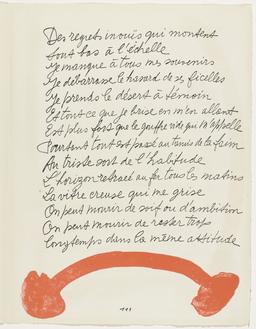 Des regrets inouïs qui montent
sont bas à l'échelle
Je manque à tous mes souvenirs
Je débarrasse le hasard de ses ficelles
Je prends le désert à témoin
Et tout ce que je brise en m'en allant
Est plus fort que le gouffre vide qui m'appelle
Pourtant tout est passé au tamis de la faim
Au triste sort de l'habitude
L'horizon retracé au fer tous les matins
La vitre creuse qui me grise
On peut mourir de soif ou d'ambition
On peut mourir de rester trop
longtemps dans la même attitude